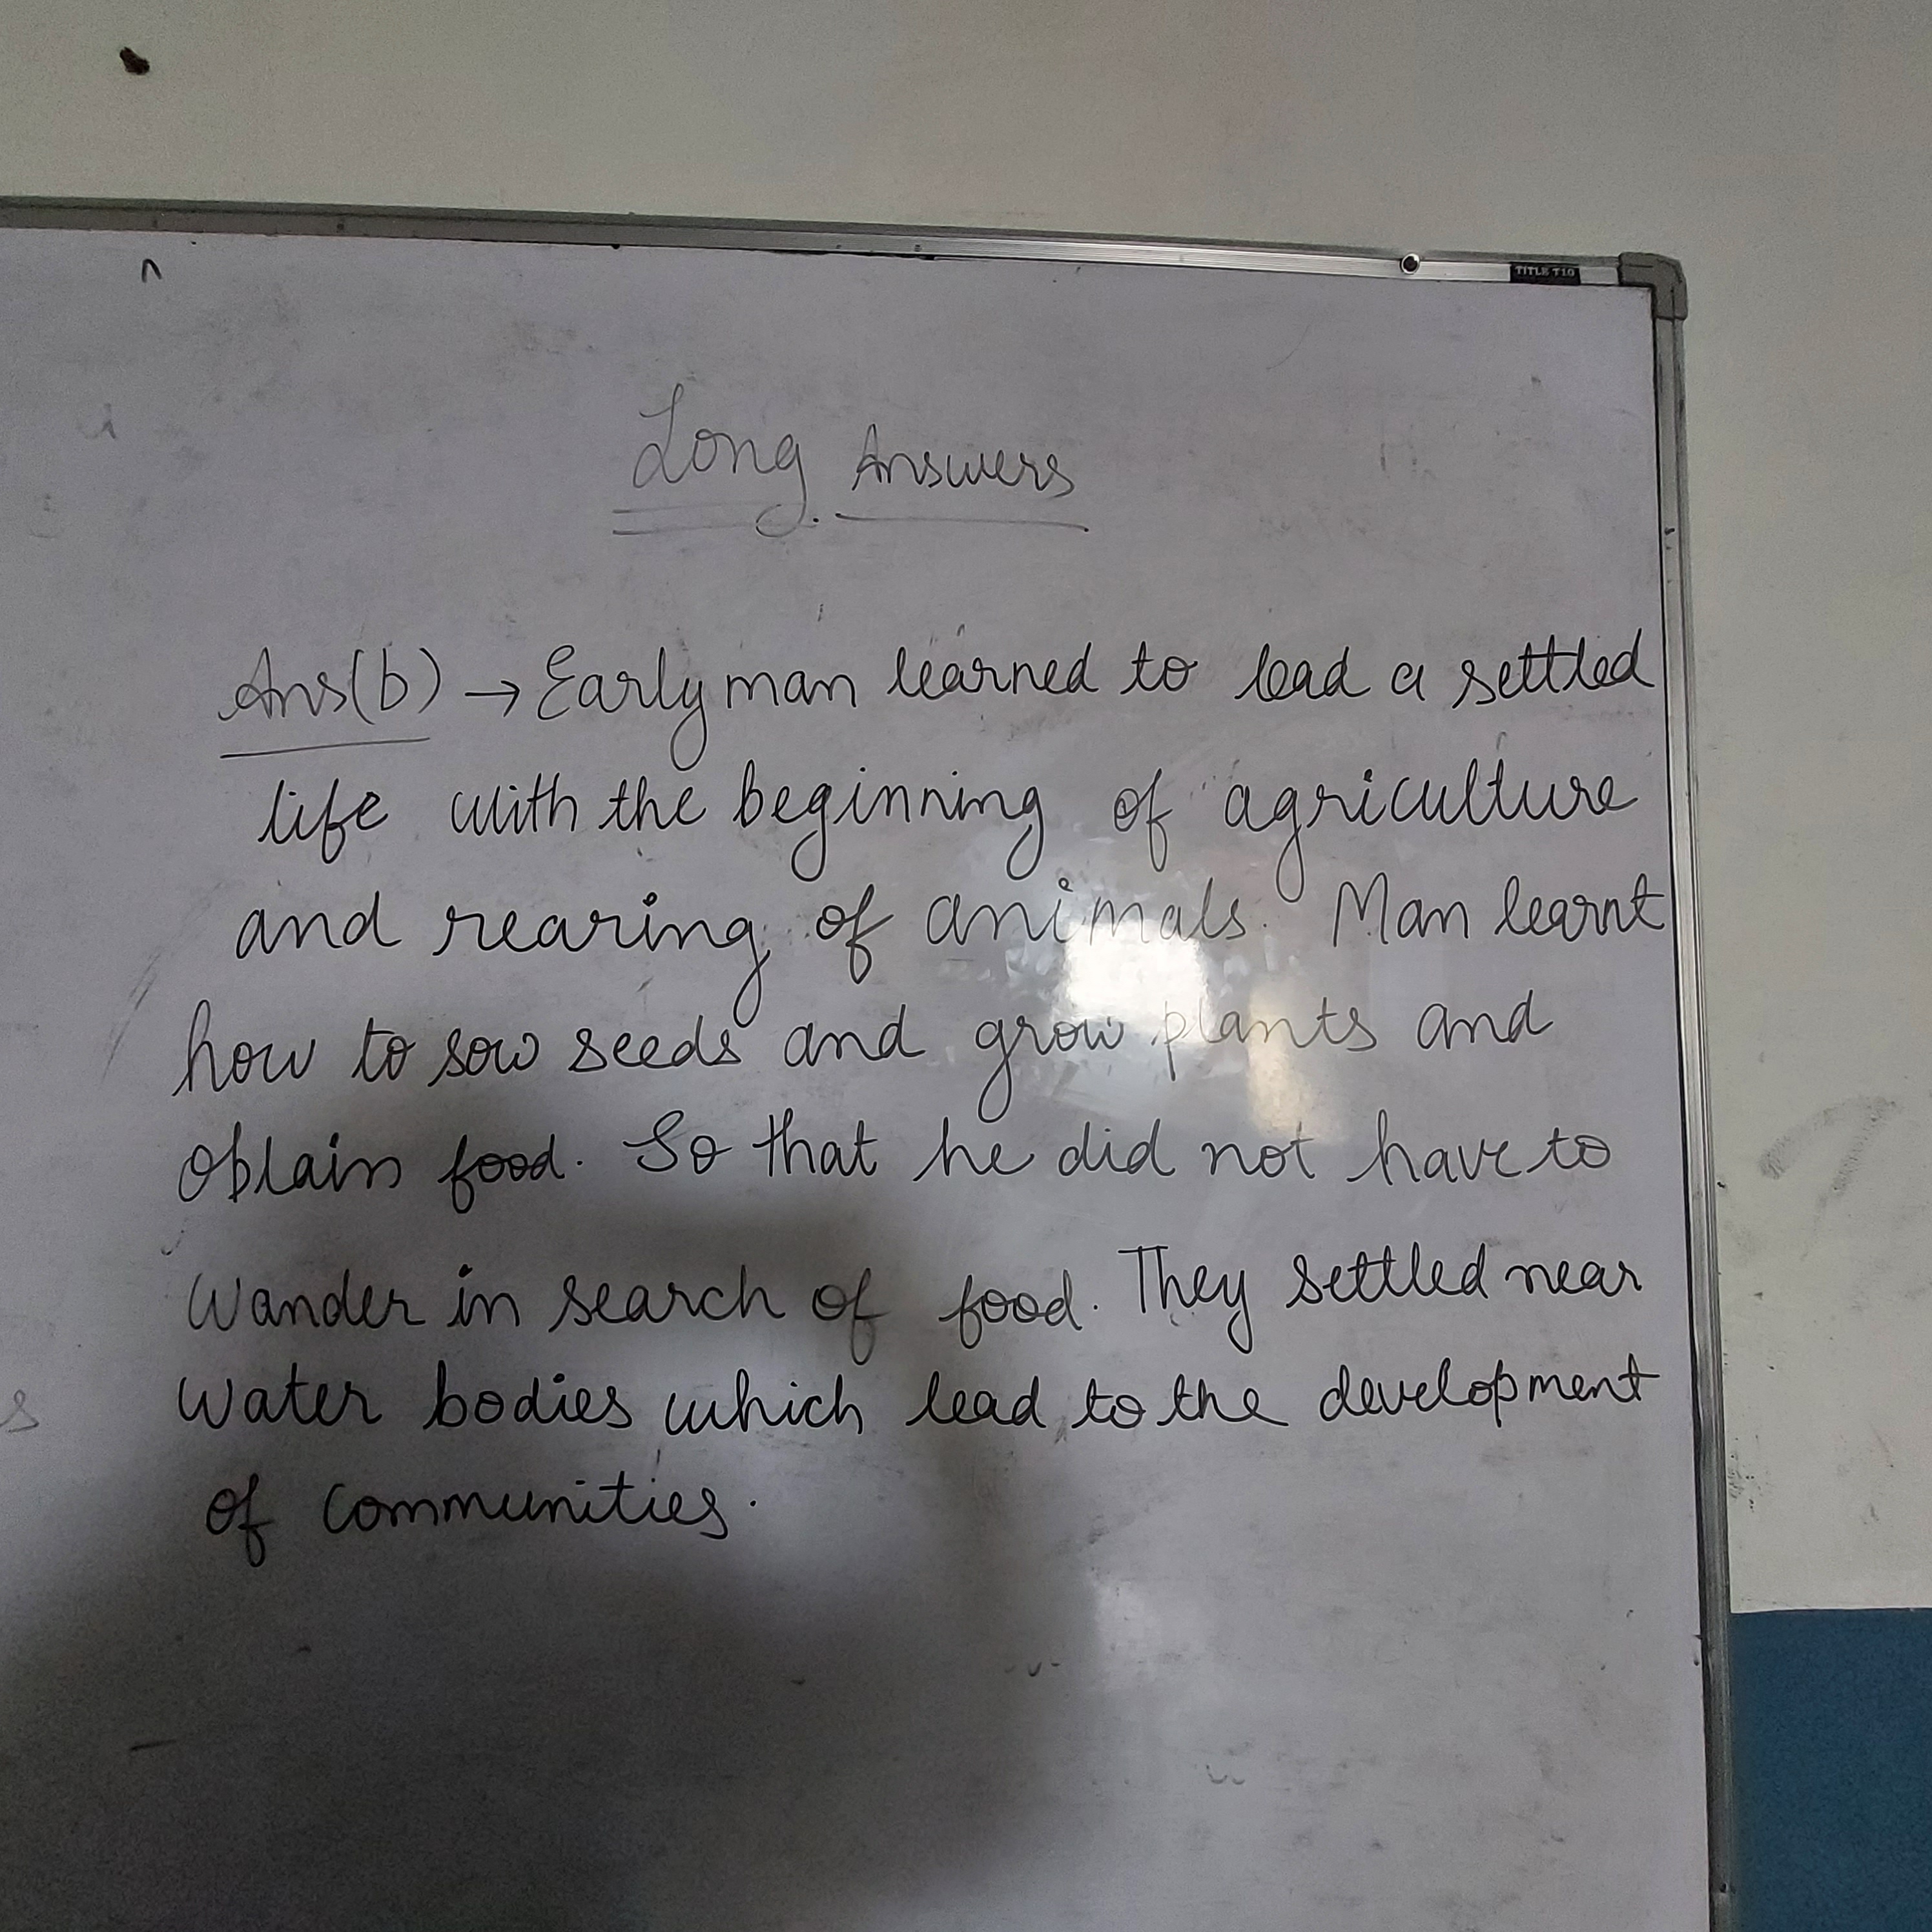 TITLE T10
Long Answers
Ans(b) → Early man learned to lead a settled
life with the beginning of agriculture
and rearing of animals. Man learnt
how to sow seeds and grow plants and
obtain food. So that he did not have to
Wander in search of food. They settled near
Water bodies which lead to the development
of communities.
s